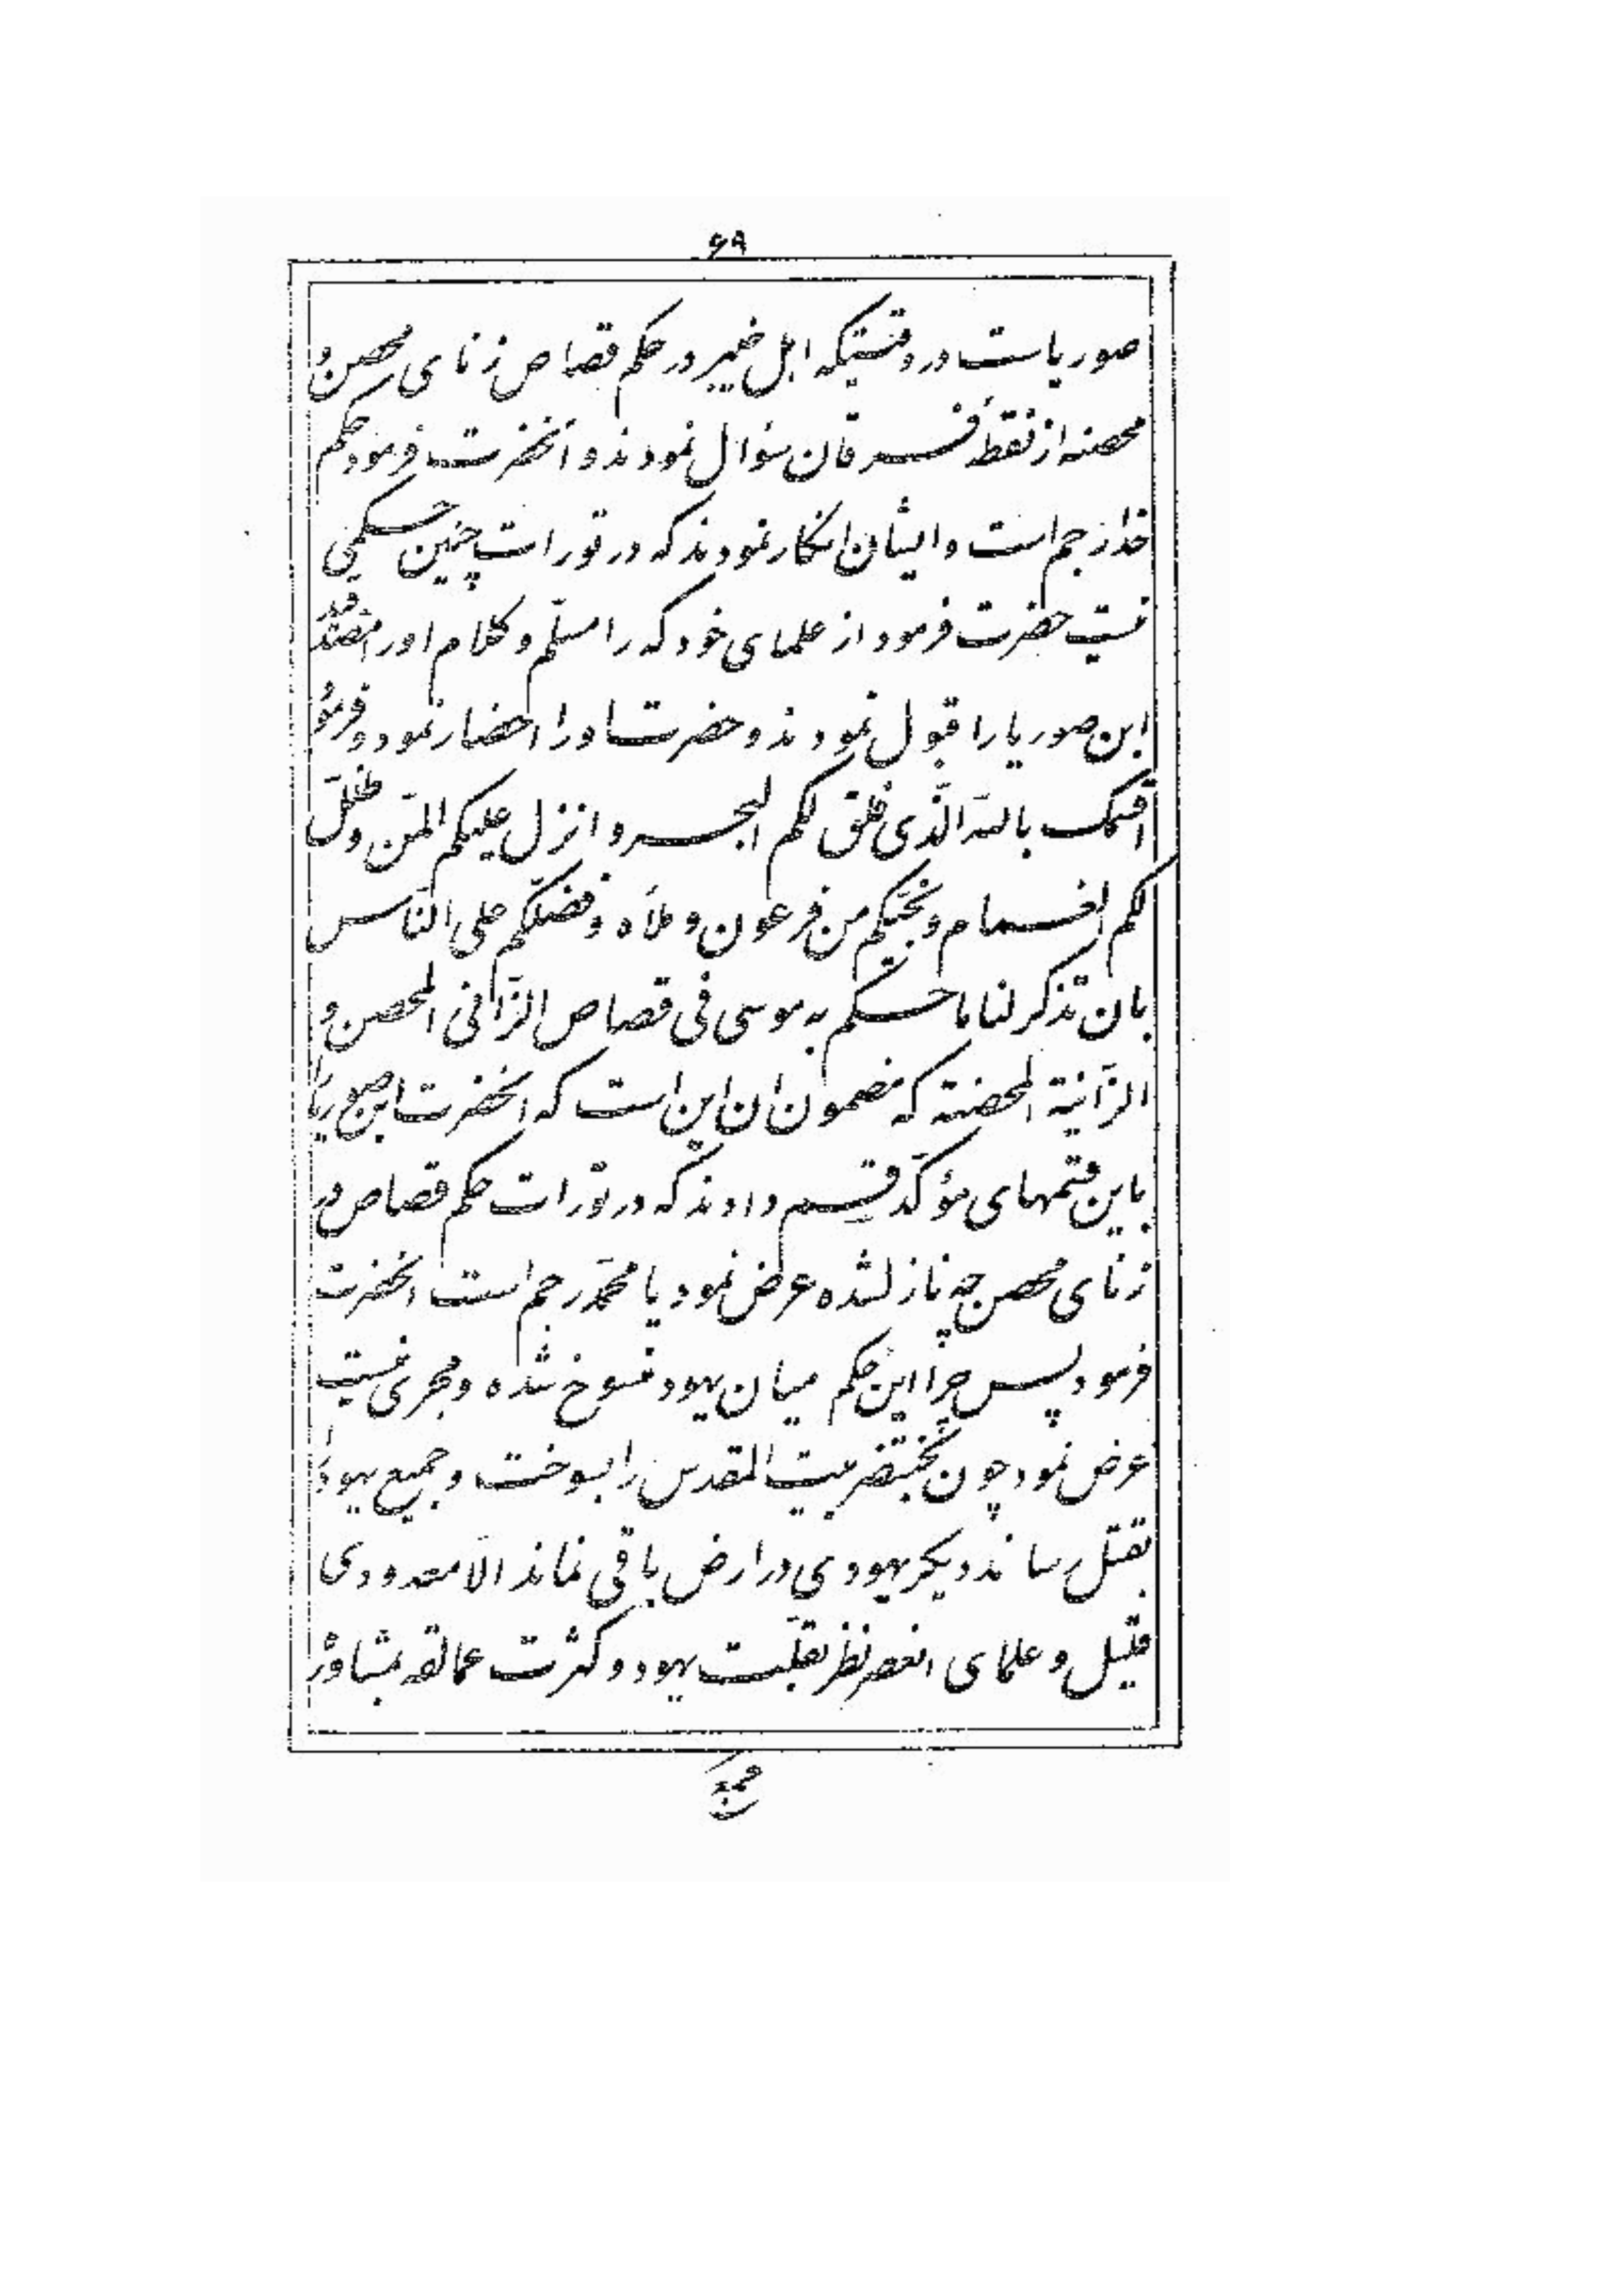 ۶۹
صوریاست در وقتیکه اهل خیبر در حکم قصاص زنای محصن و
محصنه از نقطهٔ فرقان سؤال نمودند و آنحضرت فرمود حکم
خدا رجم است و ایشان انکار نمودند که در تورات چنین حکمی
نیست حضرت فرمود از علمای خود که را مسلّم و کلام او را مصدّقید
ابن صوریا را قبول نمودند و حضرت او را احضار نمود و فرمود
اقسمک باللّه الّذی فلق لکم البحر و انزل علیکم المنّ و ظلّل
لکم الغمام و نجّیکم من فرعون و ملأه و فضّلکم علی النّاس
بان تذکر لنا ما حکم به موسی فی قصاص الزّانی المحصن و
الزّانیة المحصنة که مضمون ان این است که انحضرت ابن صوریا را
باین قسمهای مؤکّد قسم دادند که در تورات حکم قصاص در
زنای محصن چه نازل شده عرض نمود یا محمّد رجم است انحضرت
فرمود پس چرا این حکم میان یهود منسوخ شده و مجری نیست
عرض نمود چون بختنصّر بیت المقدس را بسوخت و جمیع یهود را
بقتل رساند دیگر یهودی در ارض باقی نماند الّا معدودی
قلیل و علمای انعصر نظر بقلّت یهود و کثرت عمالقه بمشاوره
جمع